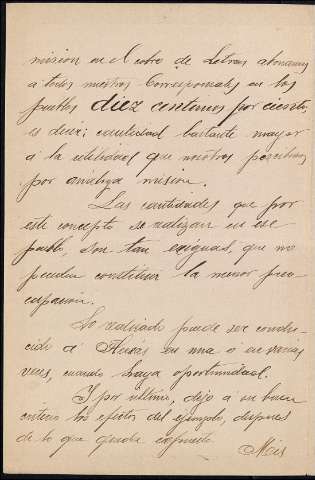 misión en el cobro de Letras abonamos
a todos nuestros Corresponsales en los
pueblos diez centimos por ciento,
es decir; cantidad bastante mayor
a la utilidad que nosotros percibimos
por análoga misión.
Las cantidades que por
este concepto se realizan en ese
pueblo, son tan exiguas, que no
pueden constituir la menor preo-
cupación.
Lo realizado puede ser condu-
cido á en una ó en varias
veces, cuando haya oportunidad.
Y por último, dejo a su buen
criterio los efectos del ejemplo, despues
de lo que queda expuesto.